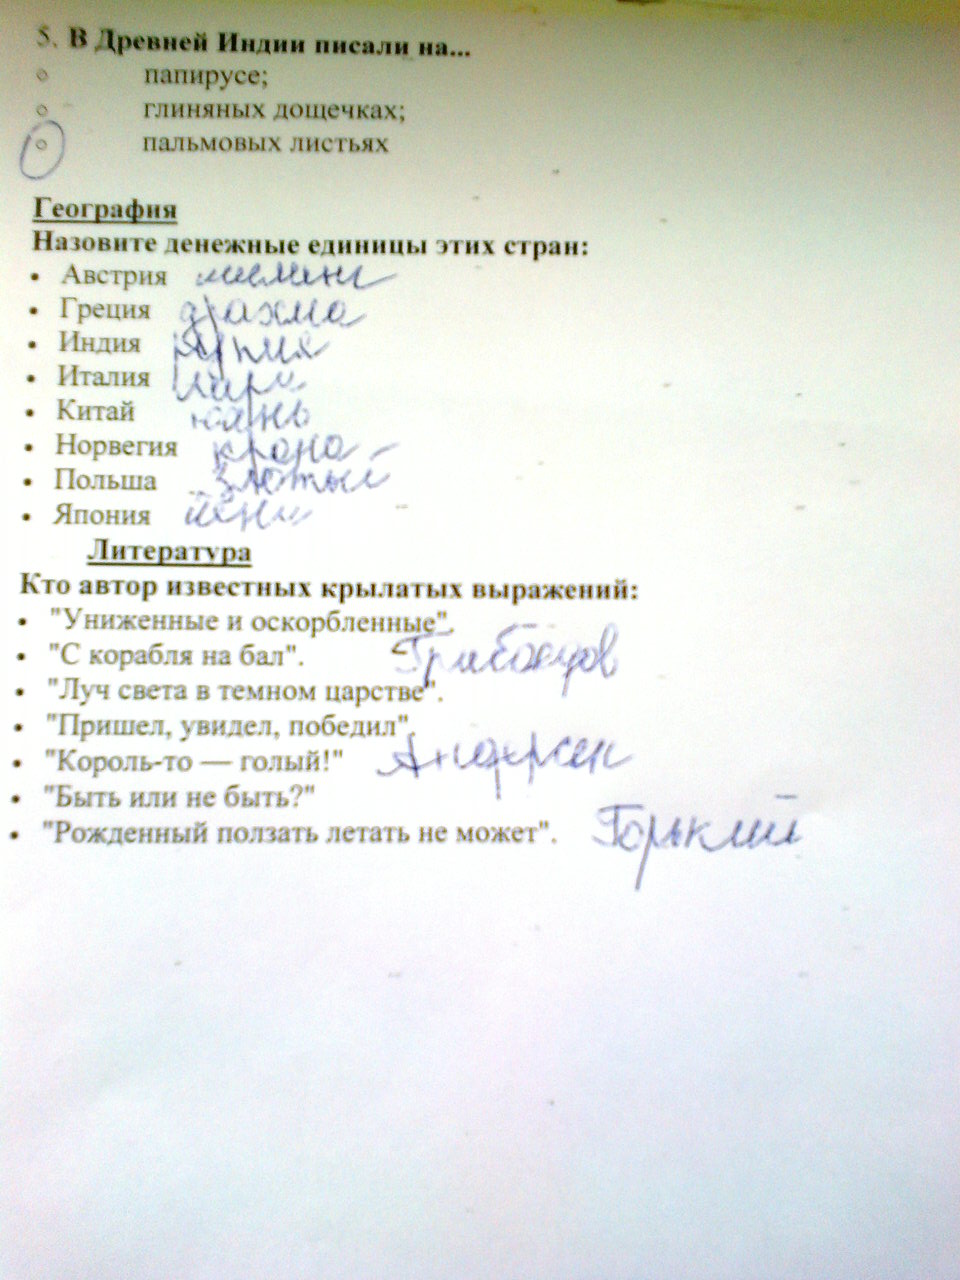 5. В Древней Индии писали на...
папирусе;
глиняных дощечках;
пальмовых листьях
География
Назовите денежные единицы этих стран:
• Австрия шилинг
• Греция драхма
• Индия рупия
• Италия
• Китай юань
• Норвегия крона
• Польша злотый
• Япония йени
Литература
Кто автор известных крылатых выражений:
• "Униженные и оскорбленные".
• "С корабля на бал". Грибоедов
• "Луч света в темном царстве".
• "Пришел, увидел, победил".
• "Король-то — голый!" Андерсен
• "Быть или не быть?"
• "Рожденный ползать летать не может". Горький